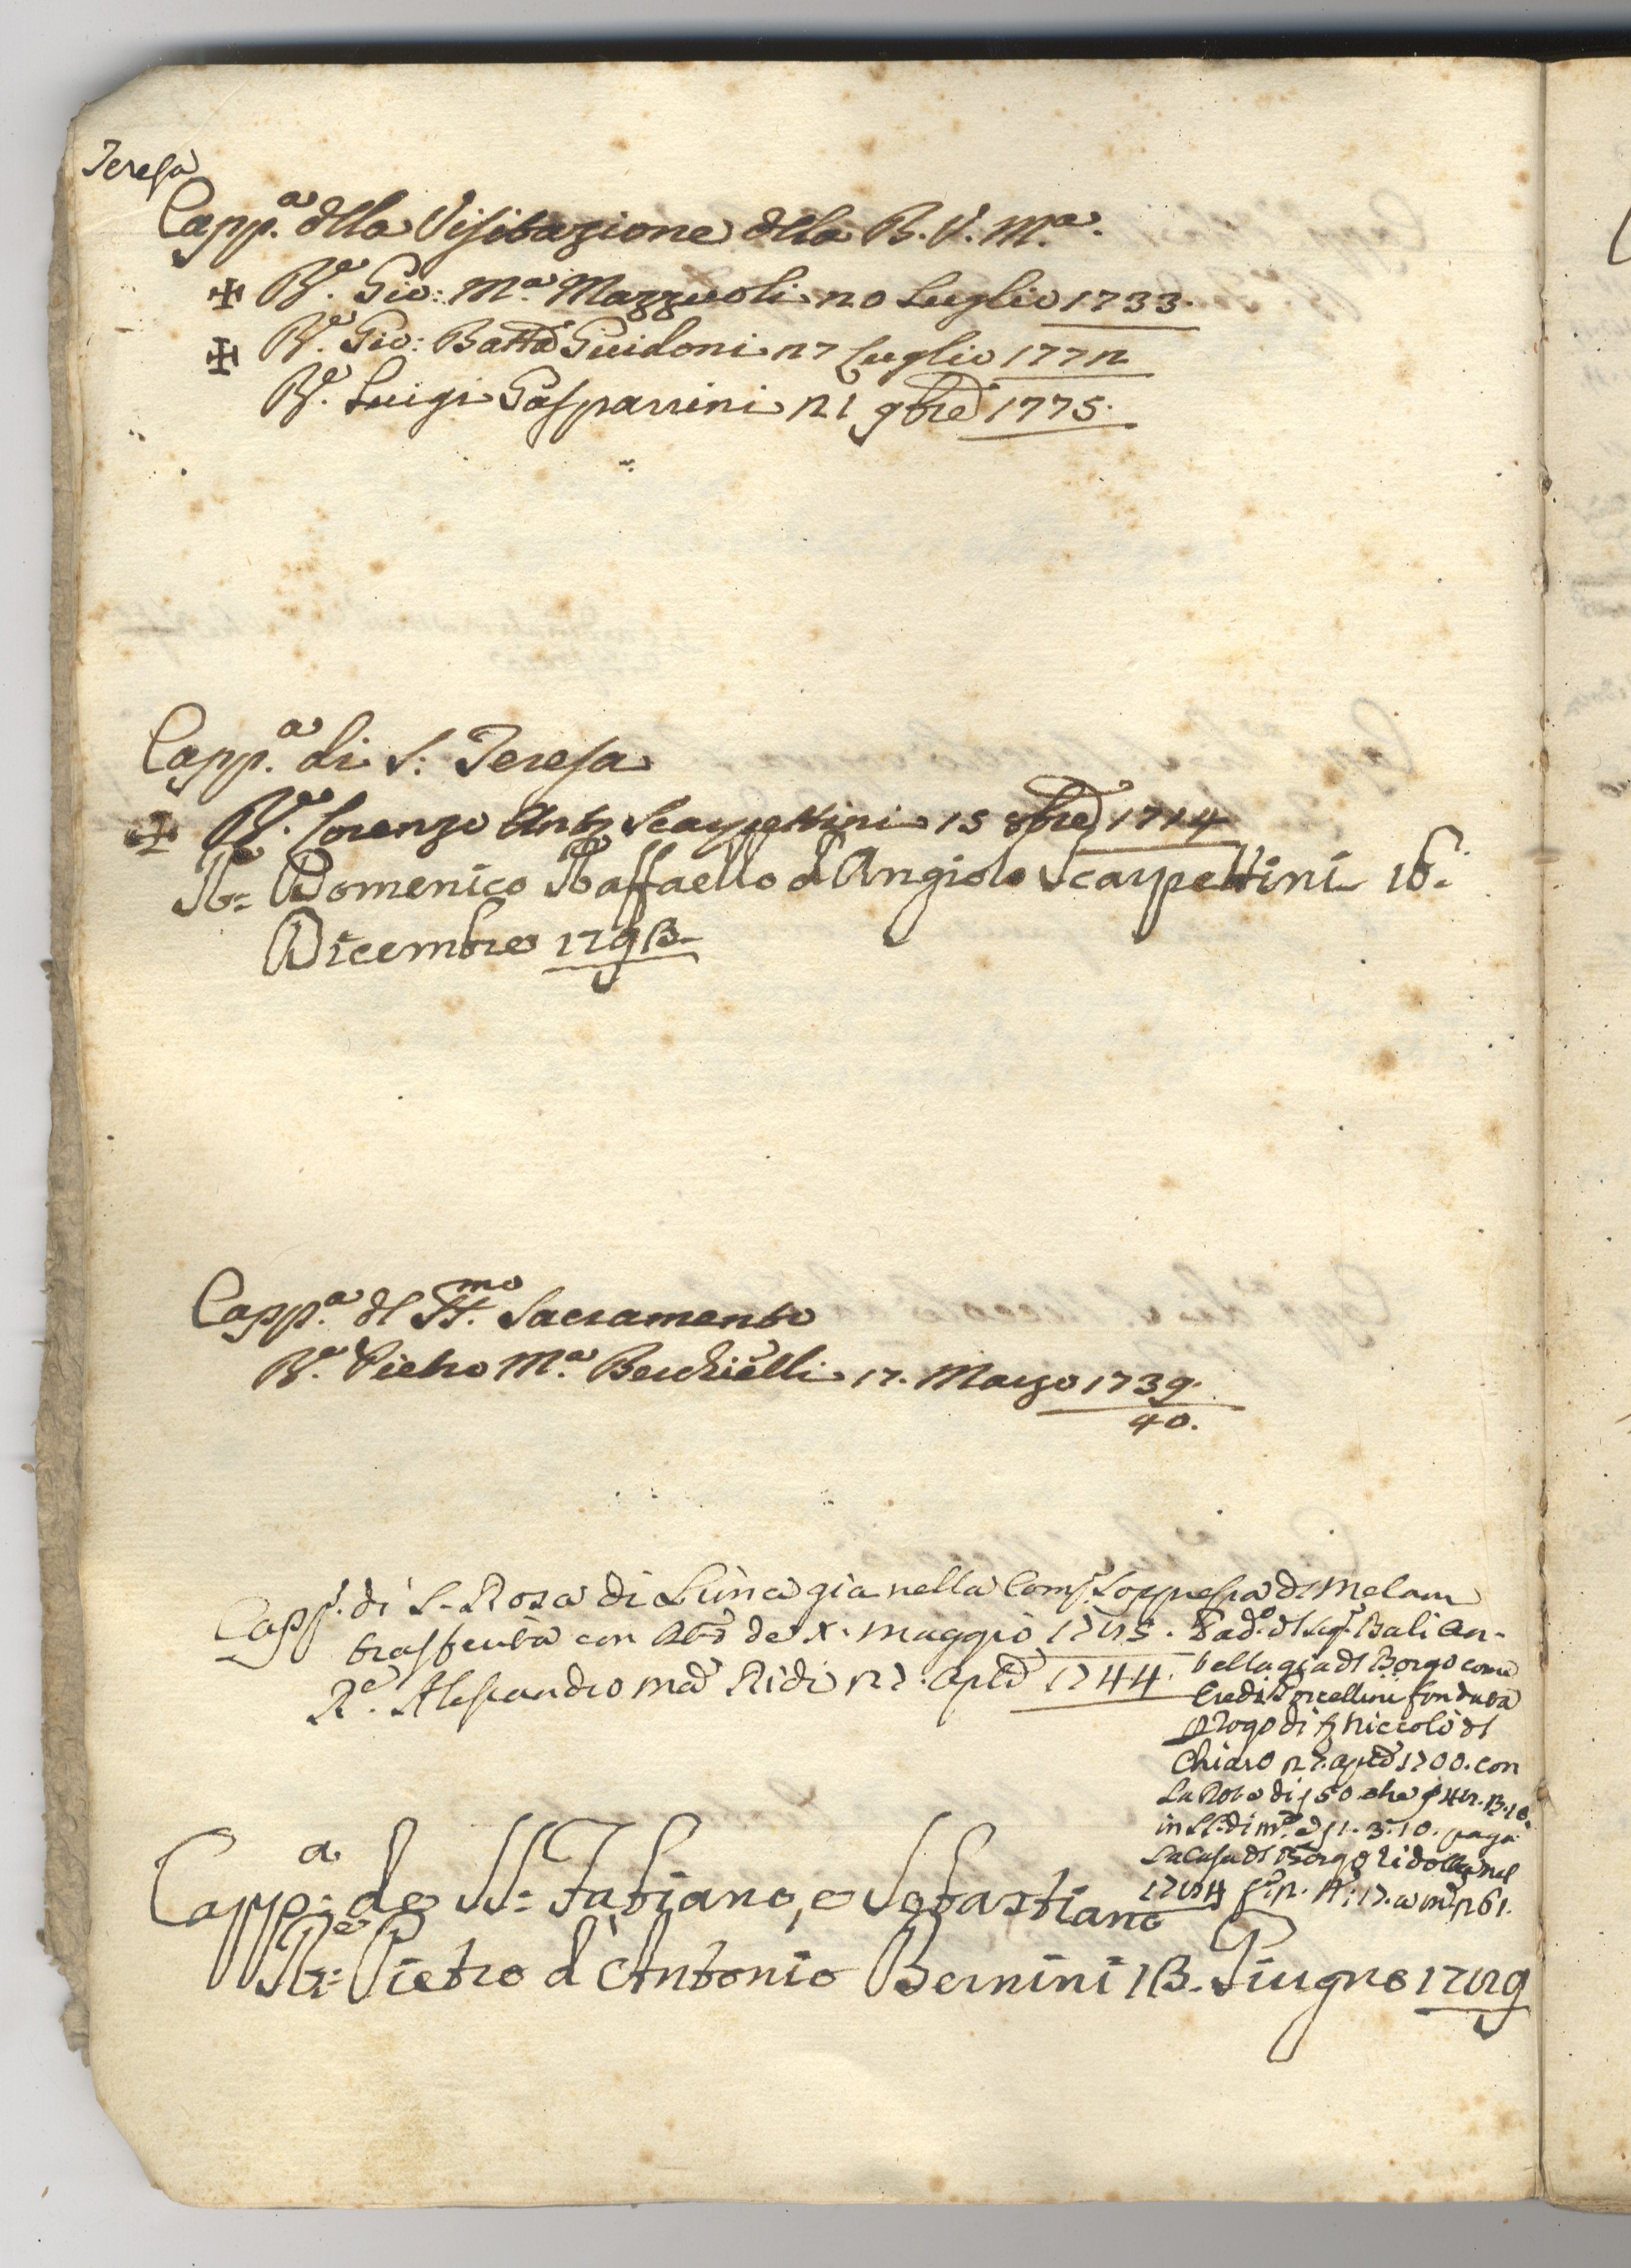 Teresa
Capp.a della Visitazione della B. V. M.a
R.e Gio: M.a Mazzuoli 20 Luglio 1733.
R.e Gio: Batta Guidoni 27 Luglio 1772
R.e Luigi Gasparrini 21 9bre 1775.
Capp.a di S: Teresa
R.e Lorenzo Anto Scarpettini 15 8bre 1714
R.e Domenico Raffaello d'Angiolo Scarpettini 16.
Dicembre 1793.
Capp.a del SS.mo Sacramento
R.e Pietro M.a Berchielli 17. Marzo 1739.
40.
Capp.a di S. Rosa di Lima gia nella Comp.a soppressa di Melam
trasferita con de X. Maggio
R.e Alessandro Ma Ridi 27. aple 1744.
Bali
del Borgo come
Eredi Porcellini fondata
Rogo di Niccolò del
Chiaro 27. aple 1700. con
La Dote di 50 che
in di 1. 3. 10. paga
La Casa del Borgo
Capp.a de SS: Fabiano, e Sebastiano
R.e Pietro d'Antonio Bernini 13. Giugno 1729